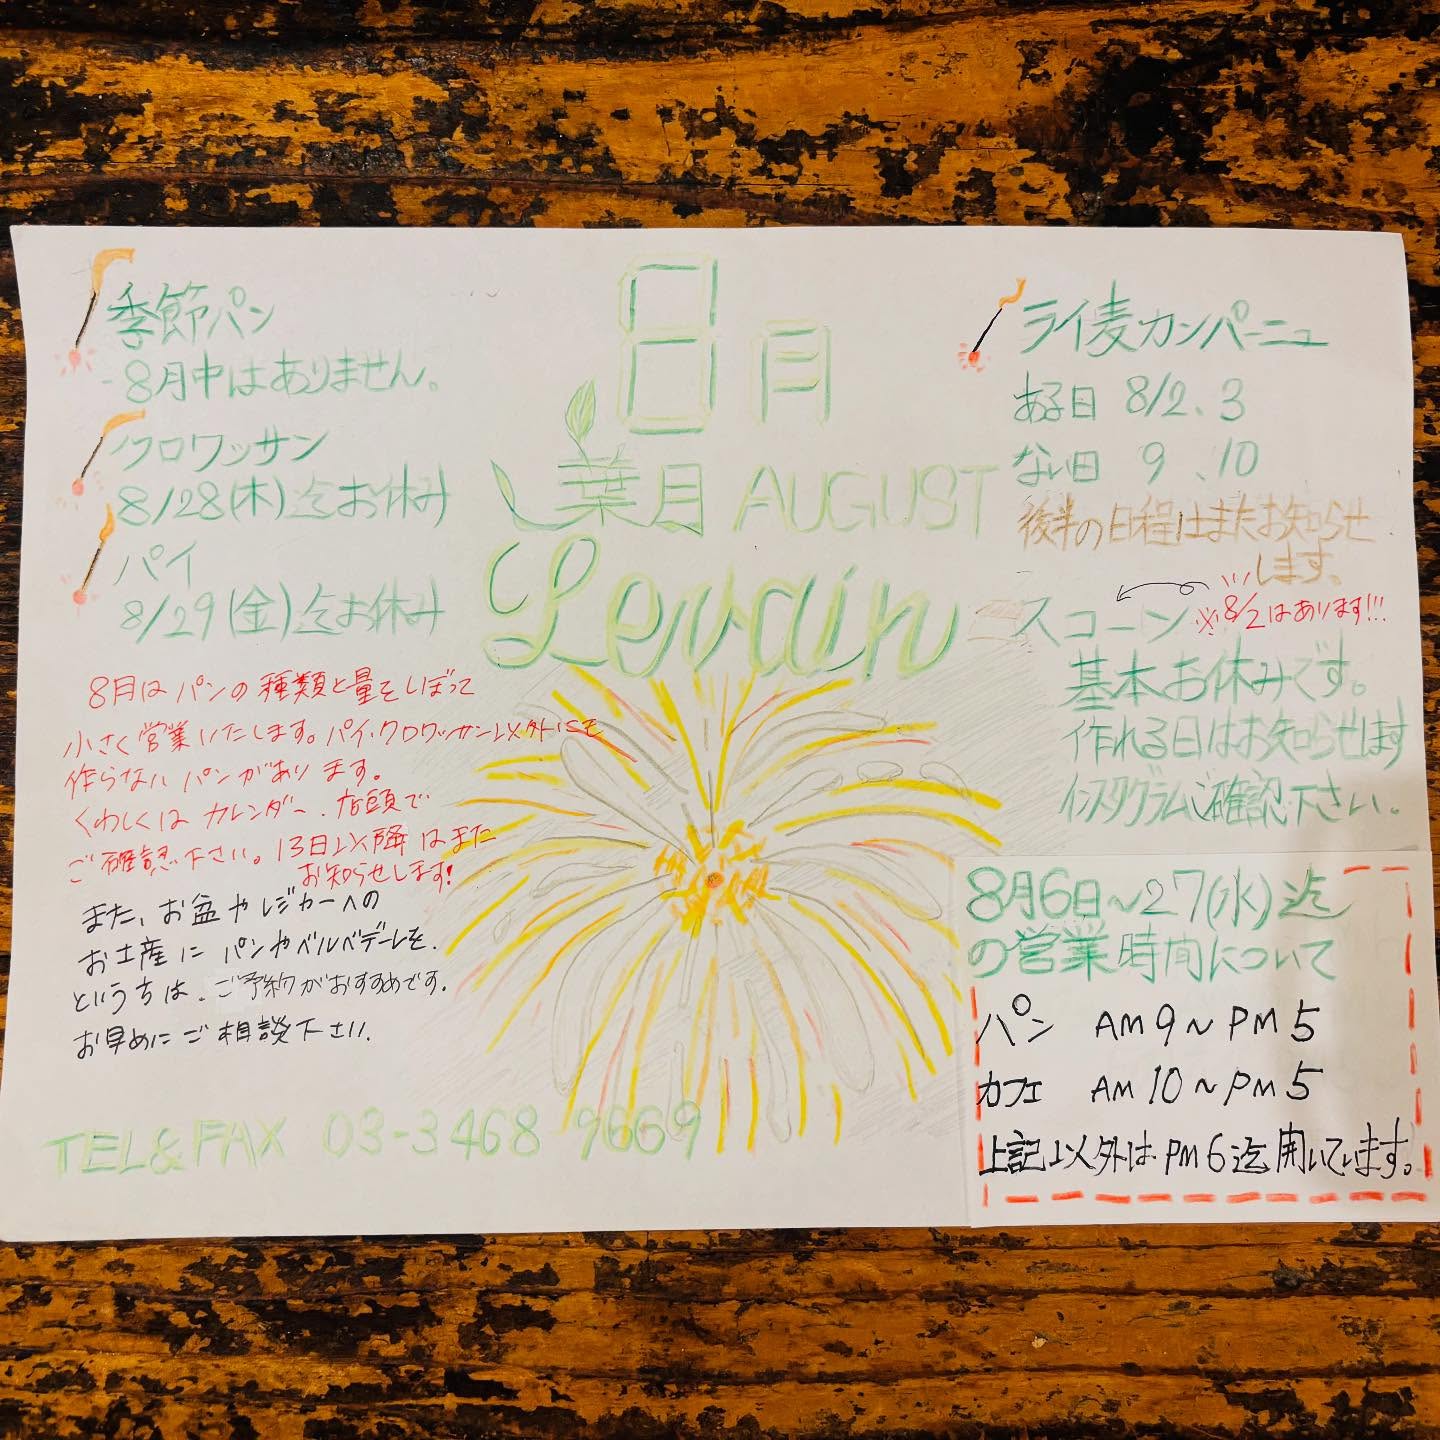 季節パン
8月中はありません。
クロワッサン
8/28(木)迄お休み
パイ
8/29(金)迄お休み
8月はパンの種類と量をしぼって
小さく営業いたします。パイ・クロワッサン以外にも
作らないパンがあります。
くわしくはカレンダー、店頭で
ご確認下さい。13日以降はまた
お知らせします!
また、お盆やレジャーへの
お土産にパンやベルベデーレを、
というちは、ご予約がおすすめです。
お早めにご相談下さい.
TEL&FAX 03-3468 9669
8月
葉月 AUGUST
Levain
ライ麦カンパーニュ
ある日 8/2、3
ない日 9、10
後半の日程はまたお知らせ
します。
スコーン ※8/2はあります!!!
基本お休みです。
作れる日はお知らせします
インスタグラムご確認下さい.
8月6日〜27(水)迄
の営業時間について
パン AM9〜PM5
カフェ AM10〜PM5
上記以外はPM6迄開いています。